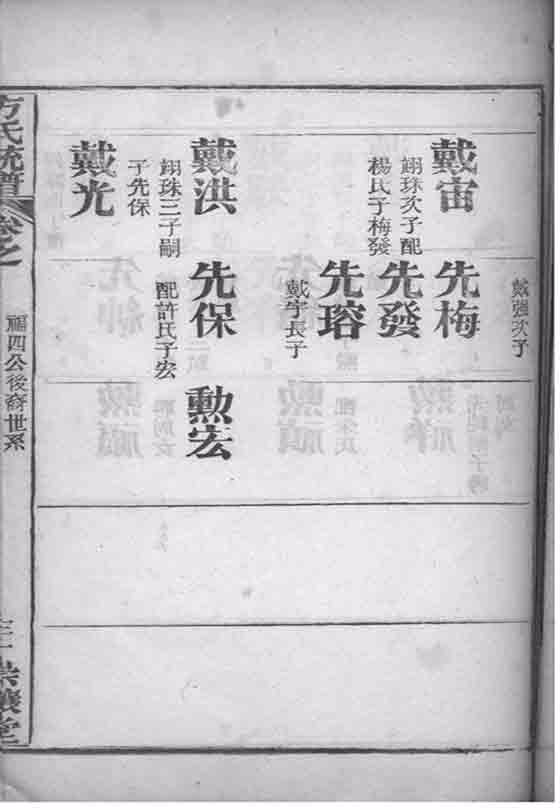 戴强次子
戴宙
先梅
翊珠次子配
楊氏子梅發
先發
先瑢
戴宇長子
戴洪
先保
勲宏
翊珠三子嗣
子先保
配許氏子宏
戴光
方氏統譜
卷之
福四公後裔世系